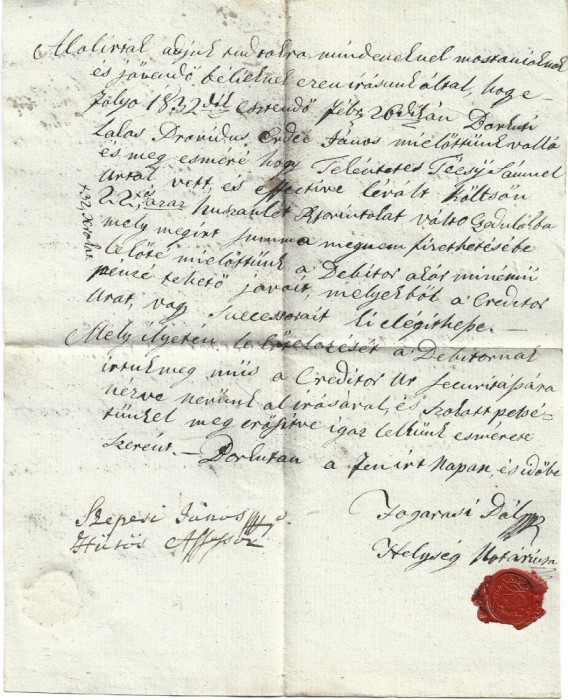 Alolirtak adjuk tudtokra mindeneknek mostaniaknak
és jövendő bélieknek ezen irásunk által, hogy e
folyo 1832dik esztendő Feb: 26dikán Dorkuti
lakos Providus Erdei János mielőttünk vallá
és meg esméré hogy Teléntetes Técsy Sámuel
Urtol vett, és effective lévált költsön
22 száz huszonkét Rforintokat válto Czedulákba
+ 32 Xrokat
mely megirt summa meg nem fizethetésébe
le lőté mielőttünk a Debitor akár minemü
pénzé tehető javait, melyekből a Creditor
Urat, vagy Successorait ki elégithesse. —
Mely ilyetén le kötelezését a Debitornak
irtuk meg mü is a Creditor Ur securitássára
nézve nevünk alirásával, és szokott petsé-
tünkel meg erősitve igaz lelkünk esmérete
szerént. — Dorkutan a fen irt napan, és időbe
Szepesi János
Hütös Assessor
Fogarasi Pál
Helység Notáriusa